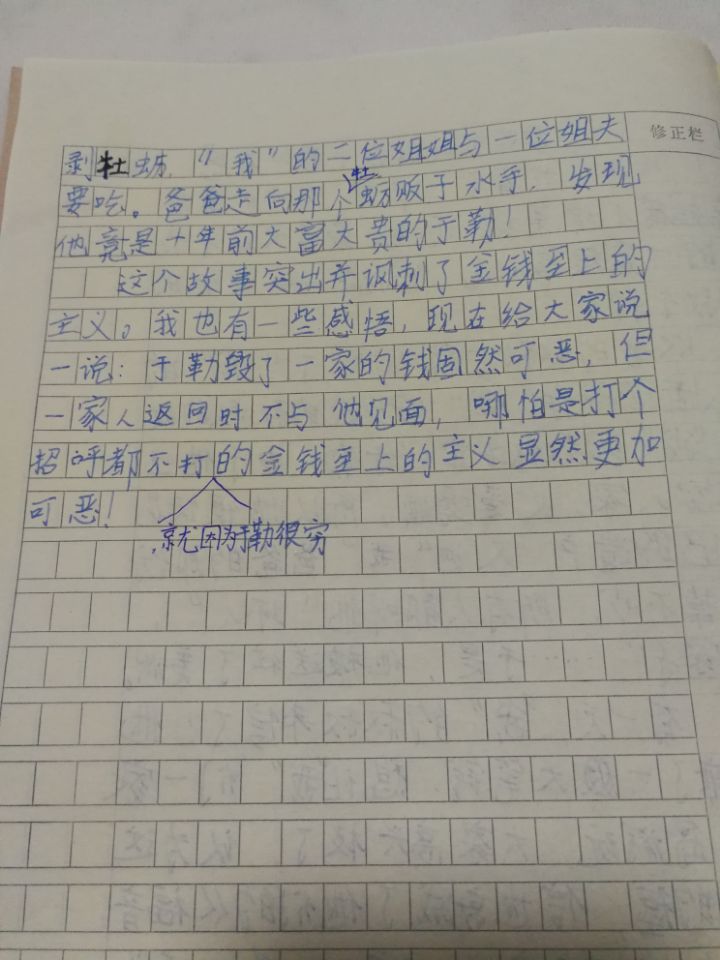 修正栏
剥牡蛎，“我”的二位姐姐与一位姐夫
要吃。爸爸走向那个牡蛎贩子水手，发现
他竟是十年前大富大贵的于勒！
这个故事突出并讽刺了金钱至上的
主义。我也有一些感悟，现在给大家说
一说：于勒毁了一家的钱固然可恶，但
一家人返回时不与他见面，哪怕是打个
招呼都不打的金钱至上的主义显然更加
可恶！
，就因为于勒很穷